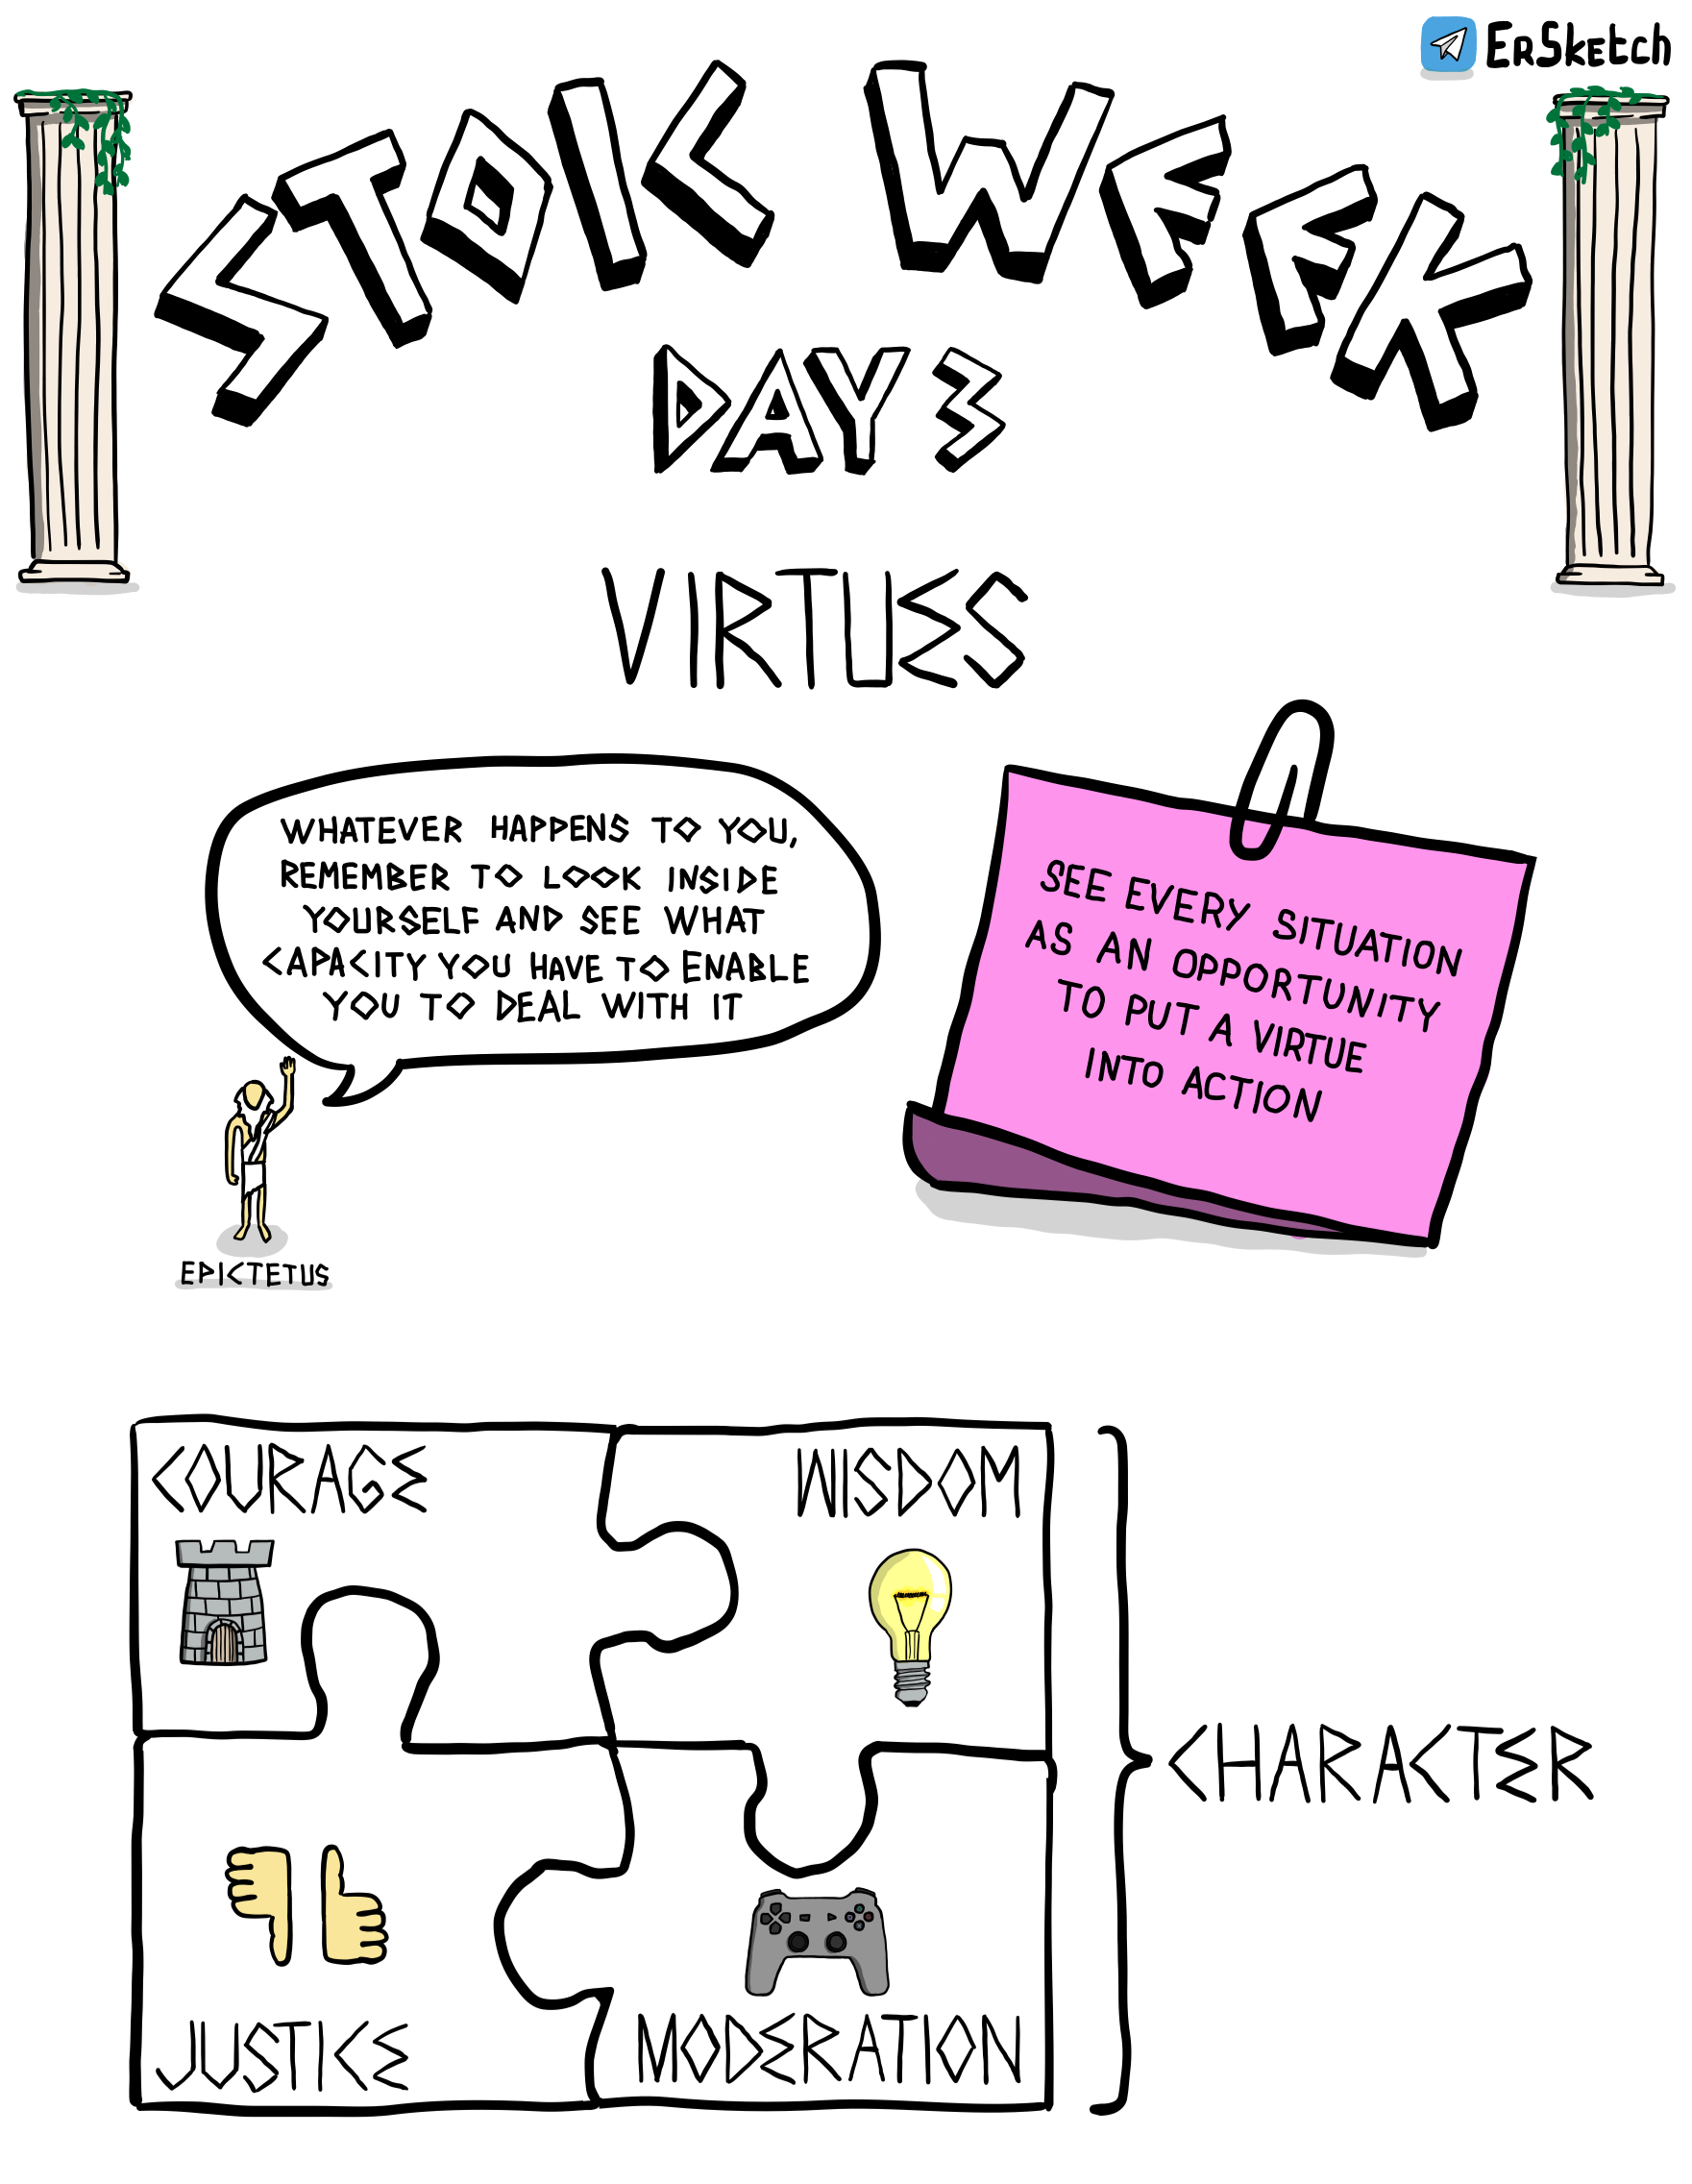 ErSketch
STOIC WEEK
DAY 3
VIRTUES
WHATEVER HAPPENS TO YOU,
REMEMBER TO LOOK INSIDE
YOURSELF AND SEE WHAT
CAPACITY YOU HAVE TO ENABLE
YOU TO DEAL WITH IT
SEE EVERY SITUATION
AS AN OPPORTUNITY
TO PUT A VIRTUE
INTO ACTION
EPICTETUS
COURAGE
WISDOM
CHARACTER
JUSTICE
MODERATION